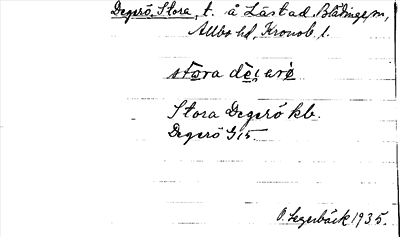 Degerö, Stora, t. å Låstad, Blädinge sn,
Allbo hd, Kronob. l.
stora
Stora Degerö kb.
Degerö G 15
O. Segerbäck 1935.